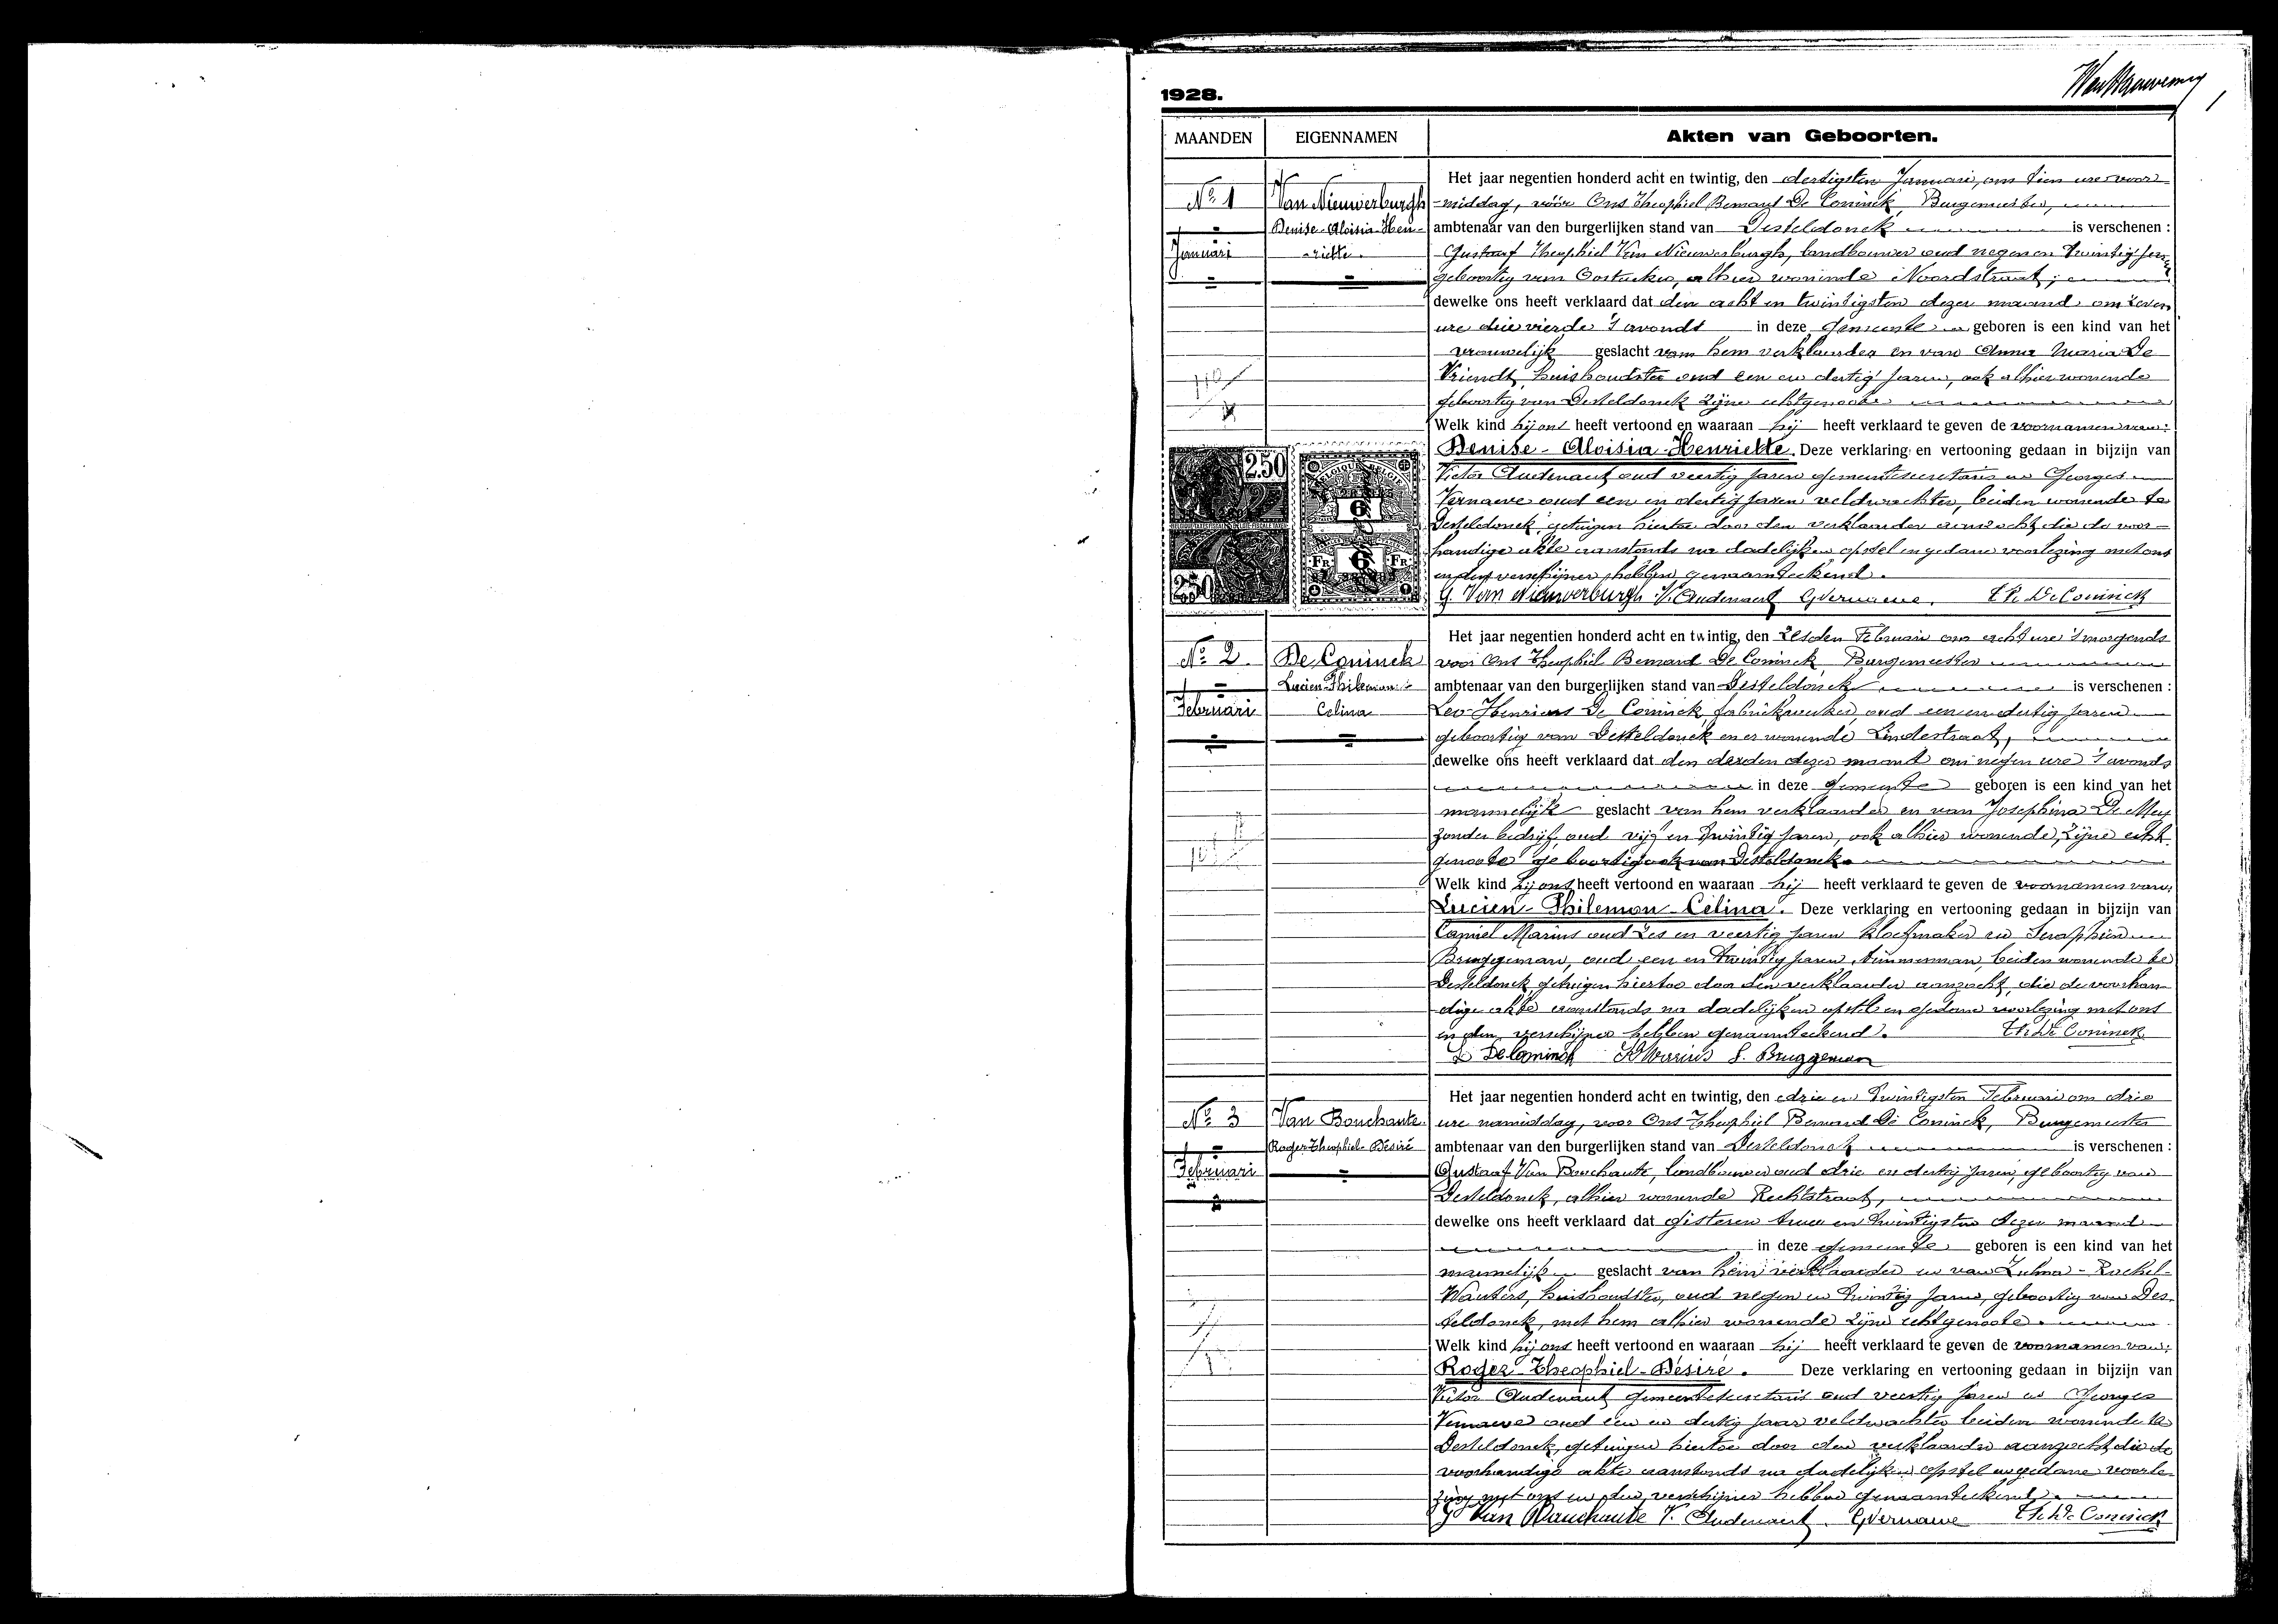 1928.
1
MAANDEN
EIGENNAMEN
Akten van Geboorten.
No 1
Januari
Van Nieuwerburgh
Denise-Aloisia-Hen-
-riette.
Het jaar negentien honderd acht en twintig, den dertigsten Januari, om tien ure voor
-middag, vóór Ons Theophiel Bernard De Coninck, Burgemeester,
ambtenaar van den burgerlijken stand van Desteldonck is verschenen :
Gustaaf Theophiel Van Nieuwerburgh, landbouwer oud negen en twintig jaren
geboortig van Oostacker, alhier wonende Noordstraat ;
dewelke ons heeft verklaard dat den acht en twintigsten dezer maand om zeven
ure drie vierde 's avonds in deze gemeente geboren is een kind van het
vrouwelijk geslacht van hem verklaarder en van Anna Maria De
Vriendt, huishoudster oud een en dertig jaren, ook alhier wonende
geboortig van Desteldonck zijne echtgenoote
Welk kind hij ons heeft vertoond en waaraan hij heeft verklaard te geven de voornamen van:
Denise - Aloisia - Henriette. Deze verklaring en vertooning gedaan in bijzijn van
Victor Audenaert oud veertig jaren gemeentesecretaris en Georges
Vernaeve oud een en dertig jaren veldwachter, beiden wonende te
Desteldonck, getuigen hiertoe door den verklaarder aanzocht, die de voor-
handige akte aanstonds na dadelijken opstel en gedane voorlezing met ons
en den verschijner hebben genaamteekend.
G. Van Nieuwerburgh V. Audenaert GVernaeve. Th. De Coninck
2.50
2.50
BELGIQUE BELGIË
6
FR. 6 FR.
No 2.
Februari
De Coninck
Lucien-Philemon-
Celina
Het jaar negentien honderd acht en twintig, den zesden Februari om acht ure 's morgends
voor Ons Theophiel Bernard De Coninck Burgemeester
ambtenaar van den burgerlijken stand van Desteldonck is verschenen :
Leo-Henricus De Coninck, fabriekwerker, oud een en dertig jaren
geboortig van Desteldonck en er wonende Lindestraat,
dewelke ons heeft verklaard dat den derden dezer maand om negen ure 's avonds
in deze gemeente geboren is een kind van het
mannelijk geslacht van hem verklaarder en van Josephina De Mey
zonder bedrijf, oud vijf en twintig jaren, ook alhier wonende, zijne echt-
genoote geboortig ook van Desteldonck.
Welk kind hij ons heeft vertoond en waaraan hij heeft verklaard te geven de voornamen van:
Lucien - Philemon - Celina. Deze verklaring en vertooning gedaan in bijzijn van
Camiel Marius oud zes en veertig jaren kloefmaker en Seraphien
Bruggeman, oud een en twintig jaren, timmerman, beiden wonende te
Desteldonck, getuigen hiertoe door den verklaarder aanzocht, die de voorhan-
dige akte aanstonds na dadelijken opstel en gedane voorlezing met ons
en den verschijner hebben genaamteekend. Th. De Coninck
L De Coninck Marius S. Bruggeman
No 3
Februari
Van Bouchaute.
Roger-Theophiel-Désiré
Het jaar negentien honderd acht en twintig, den drie en twintigsten Februari om drie
ure namiddag, voor Ons Theophiel Bernard De Coninck, Burgemeester
ambtenaar van den burgerlijken stand van Desteldonck is verschenen :
Gustaaf Van Bouchaute, landbouwer oud drie en dertig jaren, geboortig van
Desteldonck, alhier wonende Rechtstraat,
dewelke ons heeft verklaard dat gisteren twee en twintigsten dezer maand
in deze gemeente geboren is een kind van het
mannelijk geslacht van hem verklaarder en van Zulma - Rachel-
Wauters, huishoudster, oud negen en twintig jaren, geboortig van Des-
teldonck, met hem alhier wonende zijne echtgenoote.
Welk kind hij ons heeft vertoond en waaraan hij heeft verklaard te geven de voornamen van:
Roger - Theophiel - Désiré. Deze verklaring en vertooning gedaan in bijzijn van
Victor Audenaert gemeentesecretaris oud veertig jaren en Georges
Vernaeve oud een en dertig jaar veldwachter beiden wonende te
Desteldonck, getuigen hiertoe door den verklaarder aanzocht, die de
voorhandige akte aanstonds na dadelijken opstel en gedane voorle-
zing met ons en den verschijner hebben genaamteekend.
G Van Bouchaute V. Audenaert. GVernaeve Th. De Coninck